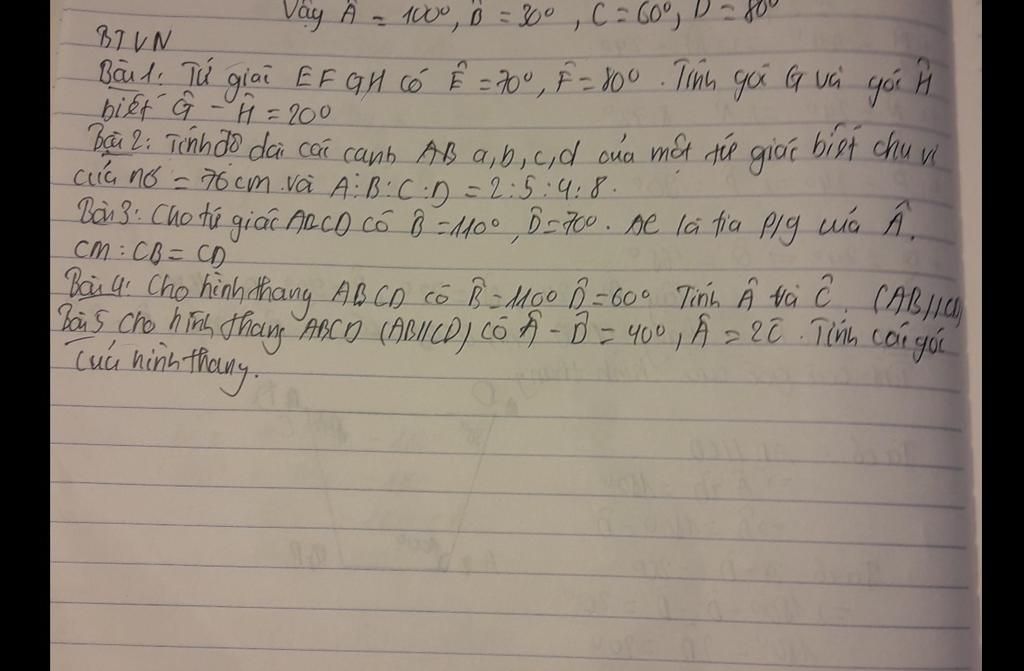 Vậy Â = 100°, B̂ = 30°, C = 60°, D = 80°
BTVN
Bài 1: Tứ giác EFGH có Ê = 70°, F̂ = 80°. Tính góc G và góc Ĥ
biết Ĝ - Ĥ = 20°
Bài 2: Tính độ dài các cạnh AB a, b, c, d của một tứ giác biết chu vi
của nó = 76cm và A:B:C:D = 2:5:4:8.
Bài 3: Cho tứ giác ABCD có B̂ = 110°, D̂ = 70°. AC là tia p/g của Â.
CM: CB = CD
Bài 4: Cho hình thang ABCD có B̂ = 110° D̂ = 60° Tính Â và Ĉ (AB//CD)
Bài 5 Cho hình thang ABCD (AB//CD) có Â - D̂ = 40°, Â = 2Ĉ. Tính các góc
của hình thang.